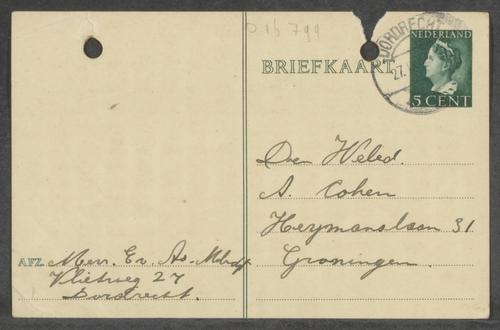 D 16 799
DORDRECHT
27.
NEDERLAND
5 CENT
BRIEFKAART
Den Weled.
A. Cohen
Heymanslaan 31.
Groningen.
AFZ. Mevr.
Vlietweg 27
Dordrecht.